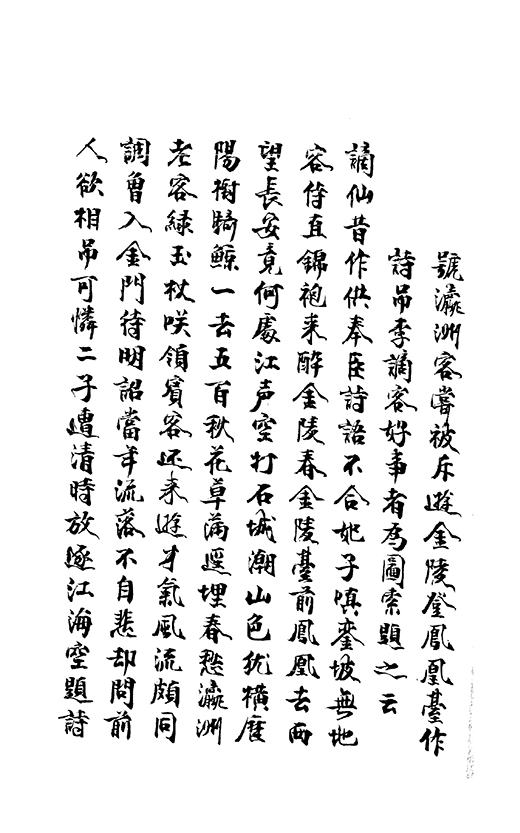 號瀛洲客嘗被斥遊金陵登鳳凰臺作
詩吊李謫客好事者為圖索題之云
謫仙昔作供奉臣詩語不合妃子嗔鑾坡無地
容侍直錦袍来醉金陵春金陵臺前鳳凰去两
望長安竟何處江声空打石城潮山色犹橫歷
陽樹騎鲸一去五百秋花草滿逕埋春愁瀛洲
老客緑玉杖咲領賓客还来遊才氣風流頗同
調曾入金門待明詔當年流落不自悲却問前
人欲相吊可憐二子遭清時放逐江海空題詩